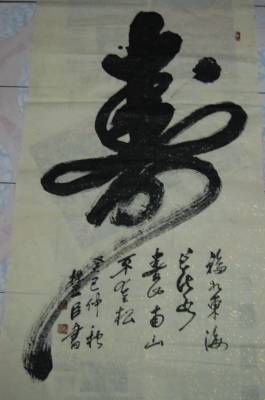 壽
福如東海
長流水
壽比南山
不老松
癸巳仲秋
臣書